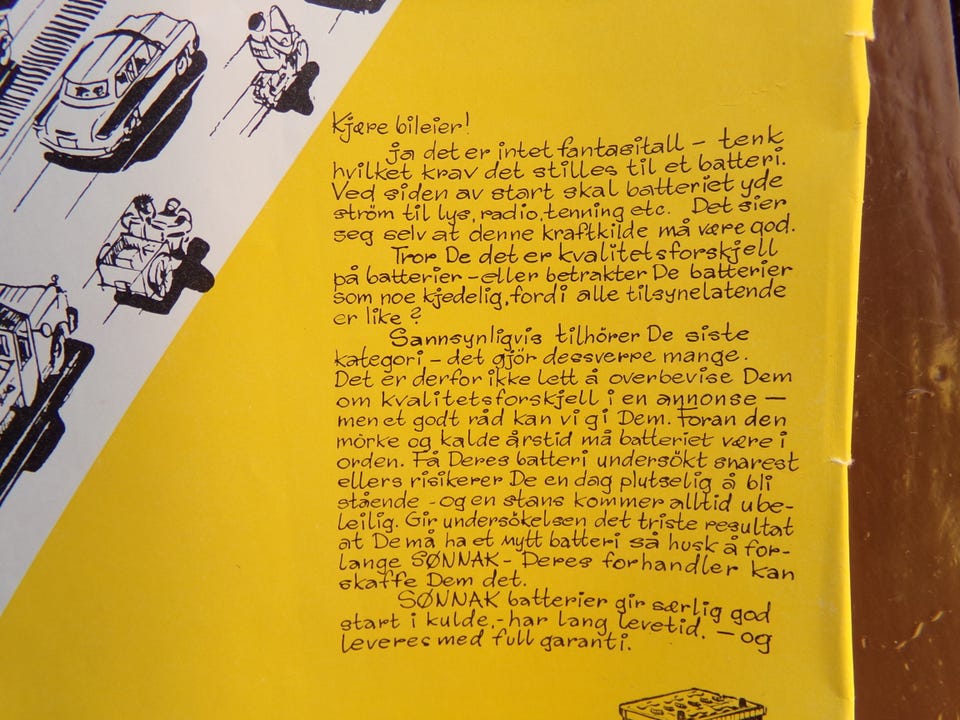 Kjære bileier!
Ja det er intet fantasitall – tenk
hvilket krav det stilles til et batteri.
Ved siden av start skal batteriet yde
ström til lys, radio, tenning etc. Det sier
seg selv at denne kraftkilde må være god.
Tror De det er kvalitetsforskjell
på batterier – eller betrakter De batterier
som noe kjedelig, fordi alle tilsynelatende
er like?
Sannsynligvis tilhörer De siste
kategori – det gjör dessverre mange.
Det er derfor ikke lett å overbevise Dem
om kvalitetsforskjell i en annonse –
men et godt råd kan vi gi Dem. Foran den
mörke og kalde årstid må batteriet være i
orden. Få Deres batteri undersökt snarest
ellers risikerer De en dag plutselig å bli
stående - og en stans kommer alltid ube-
leilig. Gir undersökelsen det triste resultat
at De må ha et nytt batteri så husk å for-
lange SØNNAK - Deres forhandler kan
skaffe Dem det.
SØNNAK batterier gir særlig god
start i kulde,- har lang levetid. – og
leveres med full garanti.